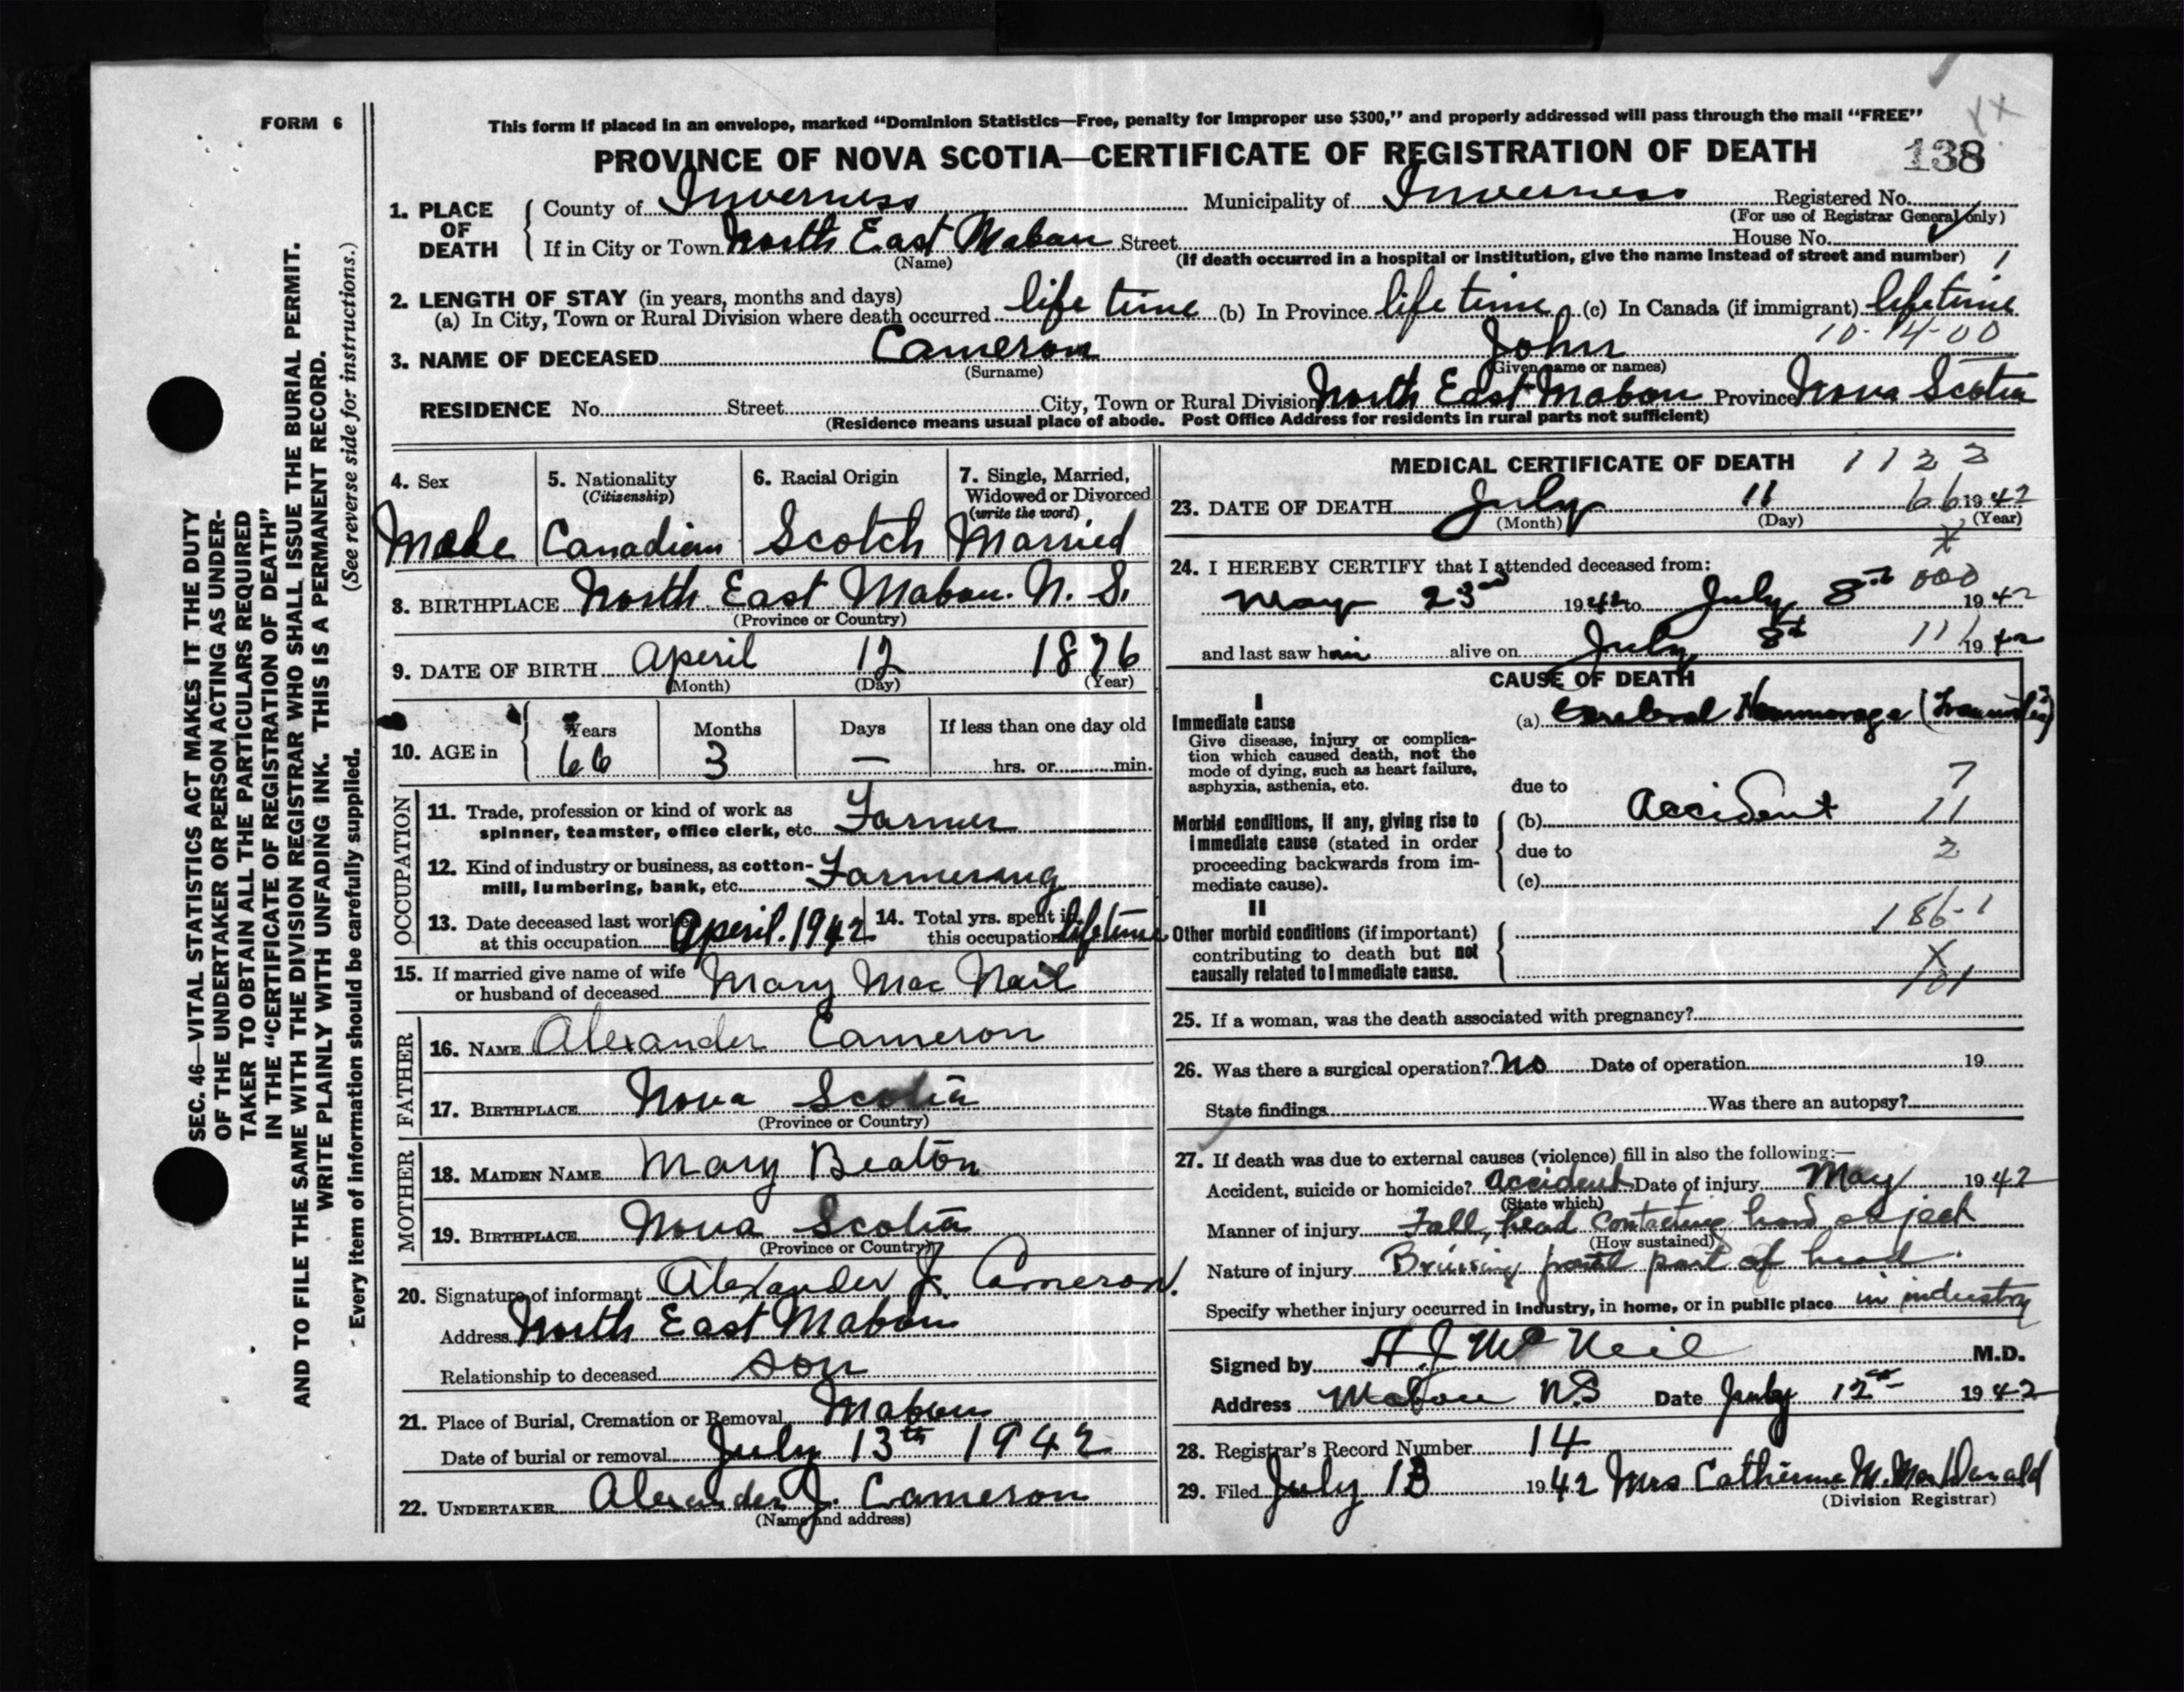 FORM 6
This form if placed in an envelope, marked "Dominion Statistics—Free, penalty for improper use $300," and properly addressed will pass through the mail "FREE"
PROVINCE OF NOVA SCOTIA—CERTIFICATE OF REGISTRATION OF DEATH 138
XX
1. PLACE OF DEATH
County of Inverness Municipality of Inverness Registered No.
(For use of Registrar General only)
If in City or Town North East Mabou Street House No.
(Name) (If death occurred in a hospital or institution, give the name instead of street and number)
2. LENGTH OF STAY (in years, months and days)
(a) In City, Town or Rural Division where death occurred life time (b) In Province life time (c) In Canada (if immigrant) lifetime
10-14-00
3. NAME OF DECEASED Cameron John
(Surname) (Given name or names)
RESIDENCE No. Street City, Town or Rural Division North East Mabou Province Nova Scotia
(Residence means usual place of abode. Post Office Address for residents in rural parts not sufficient)
4. Sex 5. Nationality 6. Racial Origin 7. Single, Married,
(Citizenship) Widowed or Divorced
(write the word)
Male Canadian Scotch Married
8. BIRTHPLACE North East Mabou. N. S.
(Province or Country)
9. DATE OF BIRTH Aperil 12 1876
(Month) (Day) (Year)
10. AGE in Years Months Days If less than one day old
66 3 — hrs. or min.
OCCUPATION
11. Trade, profession or kind of work as
spinner, teamster, office clerk, etc. Farmer
12. Kind of industry or business, as cotton-
mill, lumbering, bank, etc. Farmerang
13. Date deceased last worked
at this occupation Aperil. 1942
14. Total yrs. spent in
this occupation lifetime
15. If married give name of wife
or husband of deceased Mary Mac Neil
FATHER
16. NAME Alexander Cameron
17. BIRTHPLACE Nova Scotia
(Province or Country)
MOTHER
18. MAIDEN NAME Mary Beaton
19. BIRTHPLACE Nova Scotia
(Province or Country)
20. Signature of informant Alexander J. Cameron.
Address North East Mabou
Relationship to deceased son
21. Place of Burial, Cremation or Removal Mabou
Date of burial or removal July 13th 1942
22. UNDERTAKER Alexander J. Cameron
(Name and address)
MEDICAL CERTIFICATE OF DEATH 1122
23. DATE OF DEATH July 11 66 1942
(Month) (Day) (Year)
X
24. I HEREBY CERTIFY that I attended deceased from:
000
May 23rd 1942 to July 8th 1942
and last saw him alive on July 8th 11 1942
CAUSE OF DEATH
I
Immediate cause
Give disease, injury or complica-
tion which caused death, not the
mode of dying, such as heart failure,
asphyxia, asthenia, etc.
(a) Cerebral Hemmorage (Traumatic)
due to 7
Morbid conditions, if any, giving rise to
immediate cause (stated in order
proceeding backwards from im-
mediate cause).
(b) Accident 11
due to 2
(c)
II
Other morbid conditions (if important)
contributing to death but not
causally related to immediate cause.
186-1
X
101
25. If a woman, was the death associated with pregnancy?
26. Was there a surgical operation? No Date of operation 19
State findings Was there an autopsy?
27. If death was due to external causes (violence) fill in also the following:—
Accident, suicide or homicide? Accident Date of injury May 1942
(State which)
Manner of injury Fall, head contacting hard object
(How sustained)
Nature of injury Bruising part of head.
Specify whether injury occurred in industry, in home, or in public place in industry
Signed by A J Mc Neil M.D.
Address Mabou N.S Date July 12th 1942
28. Registrar's Record Number 14
29. Filed July 13 1942 Mrs Catherine M. MacDonald
(Division Registrar)
SEC. 46—VITAL STATISTICS ACT MAKES IT THE DUTY
OF THE UNDERTAKER OR PERSON ACTING AS UNDER-
TAKER TO OBTAIN ALL THE PARTICULARS REQUIRED
IN THE "CERTIFICATE OF REGISTRATION OF DEATH"
AND TO FILE THE SAME WITH THE DIVISION REGISTRAR WHO SHALL ISSUE THE BURIAL PERMIT.
WRITE PLAINLY WITH UNFADING INK. THIS IS A PERMANENT RECORD.
(See reverse side for instructions.)
Every item of information should be carefully supplied.